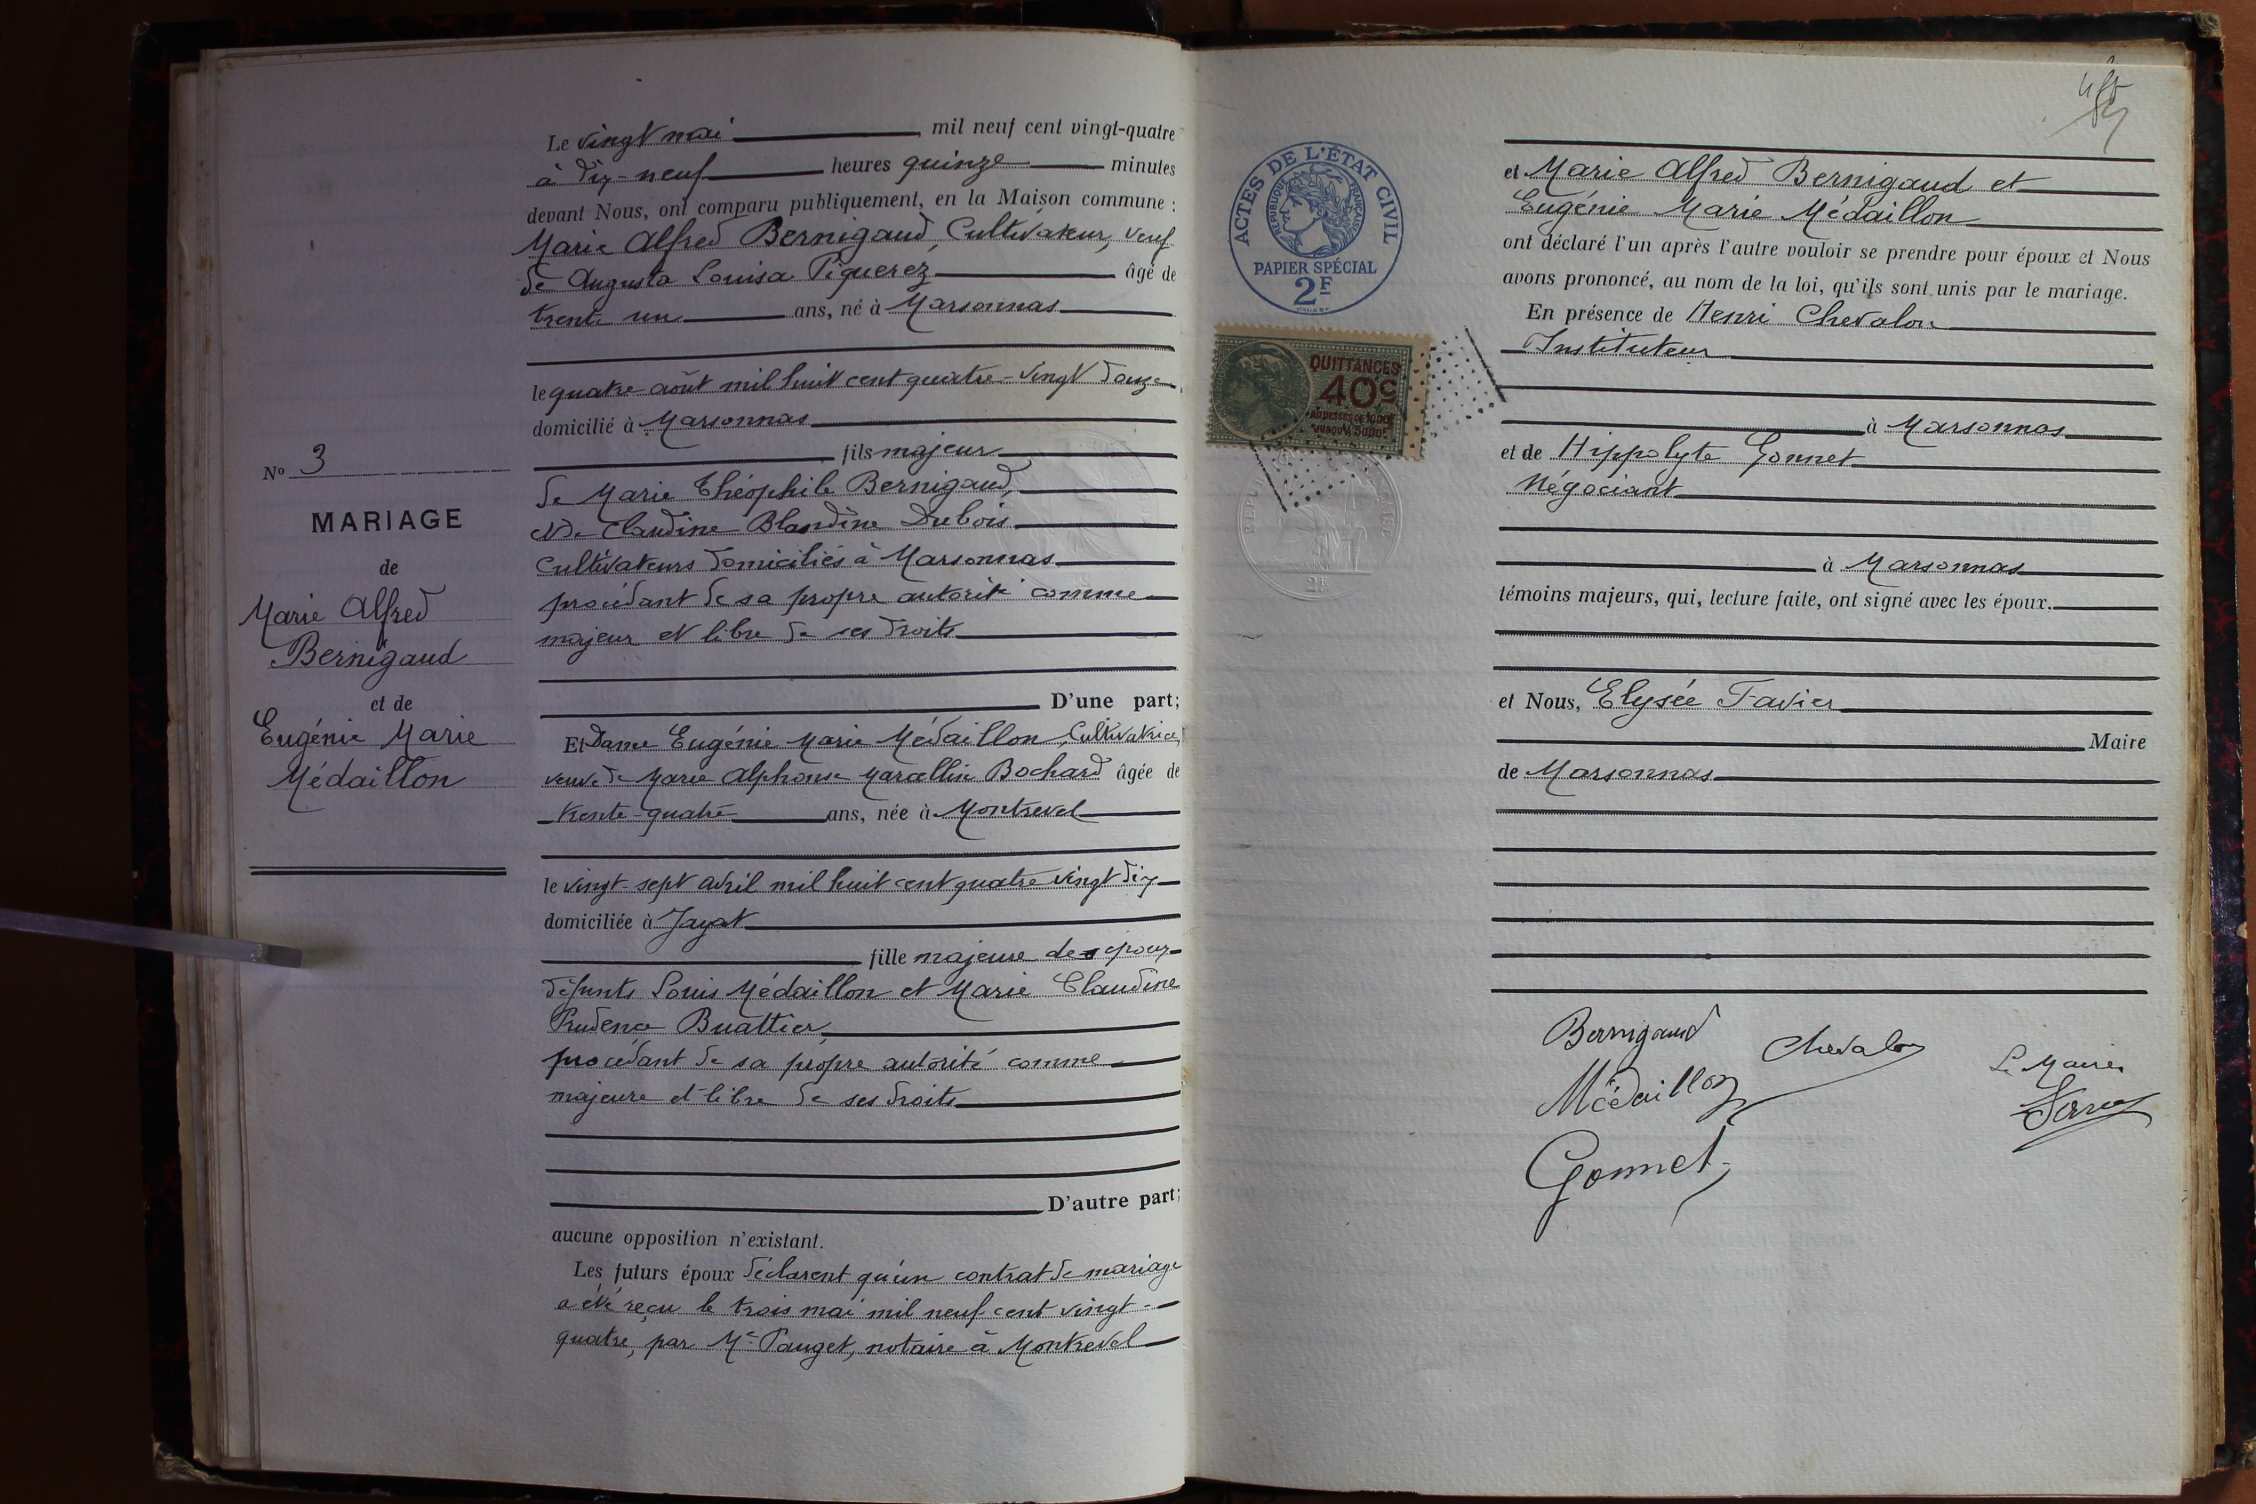 Le vingt mai mil neuf cent vingt-quatre
à dix-neuf heures quinze minutes
devant Nous, ont comparu publiquement, en la Maison commune :
Marie Alfred Bernigaud, Cultivateur, veuf
de Augusta Louisa Piquerez âgé de
trente un ans, né à Marsonnas
le quatre août mil huit cent quatre-vingt douze
domicilié à Marsonnas
fils majeur
de Marie Théophile Bernigaud,
et de Claudine Blandine Dubois
cultivateurs domiciliés à Marsonnas
procédant de sa propre autorité comme
majeur et libre de ses droits
D'une part;
Et Dame Eugénie Marie Médaillon, Cultivatrice,
veuve de Marie Alphonse Marcellin Bochard âgée de
trente-quatre ans, née à Montrevel
le vingt-sept avril mil huit cent quatre vingt dix
domiciliée à Jayat
fille majeure de époux
défunts Louis Médaillon et Marie Claudine
Prudence Buattier,
procédant de sa propre autorité comme
majeure et libre de ses droits
D'autre part;
aucune opposition n'existant.
Les futurs époux déclarent qu'un contrat de mariage
a été reçu le trois mai mil neuf cent vingt-
quatre, par Me Pauget, notaire à Montrevel
No 3
MARIAGE
de
Marie Alfred
Bernigaud
et de
Eugénie Marie
Médaillon
ACTES DE L'ÉTAT CIVIL
RÉPUBLIQUE FRANÇAISE
PAPIER SPÉCIAL
2F
QUITTANCES
40c
2F
et Marie Alfred Bernigaud et
Eugénie Marie Médaillon
ont déclaré l'un après l'autre vouloir se prendre pour époux et Nous
avons prononcé, au nom de la loi, qu'ils sont unis par le mariage.
En présence de Henri Chevalon
Instituteur
à Marsonnas
et de Hippolyte Gonnet
Négociant
à Marsonnas
témoins majeurs, qui, lecture faite, ont signé avec les époux.
et Nous, Elysée Favier
Maire
de Marsonnas
Bernigaud
Chevalon
Le Maire
Médaillon
Gonnet